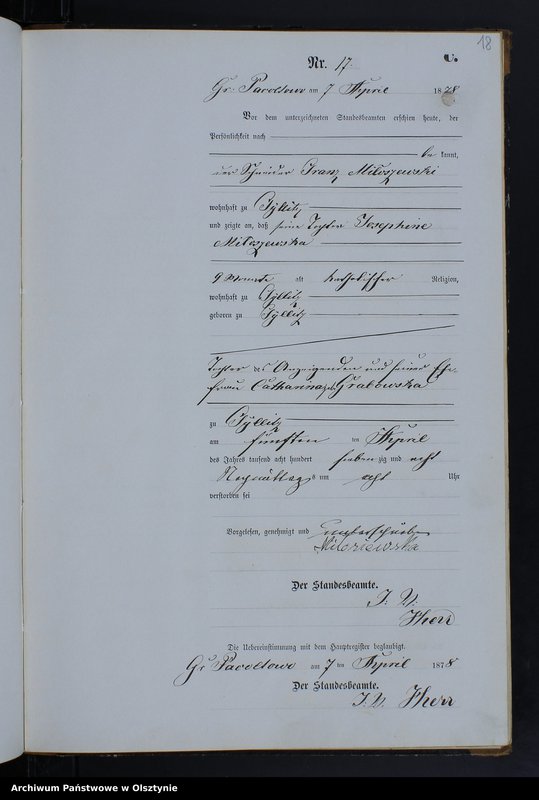 18
C.
Nr. 17.
Gr. Pacoltowo am 7 April 1878
Vor dem unterzeichneten Standesbeamten erschien heute, der
Persönlichkeit nach
be kannt,
der Schneider Franz Miloszewski
wohnhaft zu Gyllitz
und zeigte an, daß seine Tochter Josephine
Miloszewska
9 Monate alt katholischer Religion,
wohnhaft zu Gyllitz
geboren zu Gyllitz
Tochter des Anzeigenden und seiner Ehe-
frau Catharina geb Grabowska
zu Gyllitz
am fünften ten April
des Jahres tausend acht hundert sieben zig und acht
Nachmittags um acht Uhr
verstorben sei
Vorgelesen, genehmigt und unterschrieben
Miloziewska
Der Standesbeamte.
I. V.
Die Uebereinstimmung mit dem Hauptregister beglaubigt.
Gr Pacoltowo am 7 ten April 1878
Der Standesbeamte.
I. V.
Archiwum Państwowe w Olsztynie